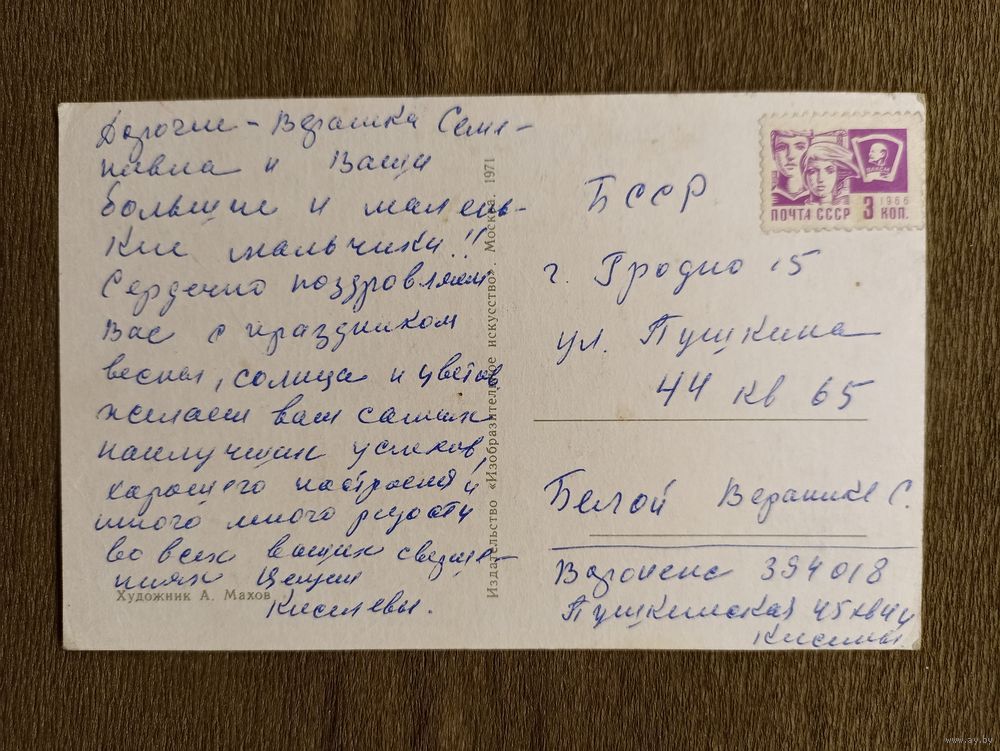 Дорогие - Верашка Семе-
новна и Ваши
большие и малень-
кие мальчики!!
Сердечно поздровляем
Вас с праздником
весны, солнца и цветов
желаем вам самих
наилучших успехов,
харошего настроения и
много много радости
во всех ваших
Целуем
Киселевы.
Художник А. Махов
Издательство «Изобразительное искусство». Москва. 1971
ПОЧТА СССР 3 КОП.
1966
ВЛКСМ
БССР
г. Гродно 15
ул. Пушкина
44 кв 65
Белой Верашке С.
Воронеж 394018
Пушкинская 45 кв 44
Киселевы
www.ay.by